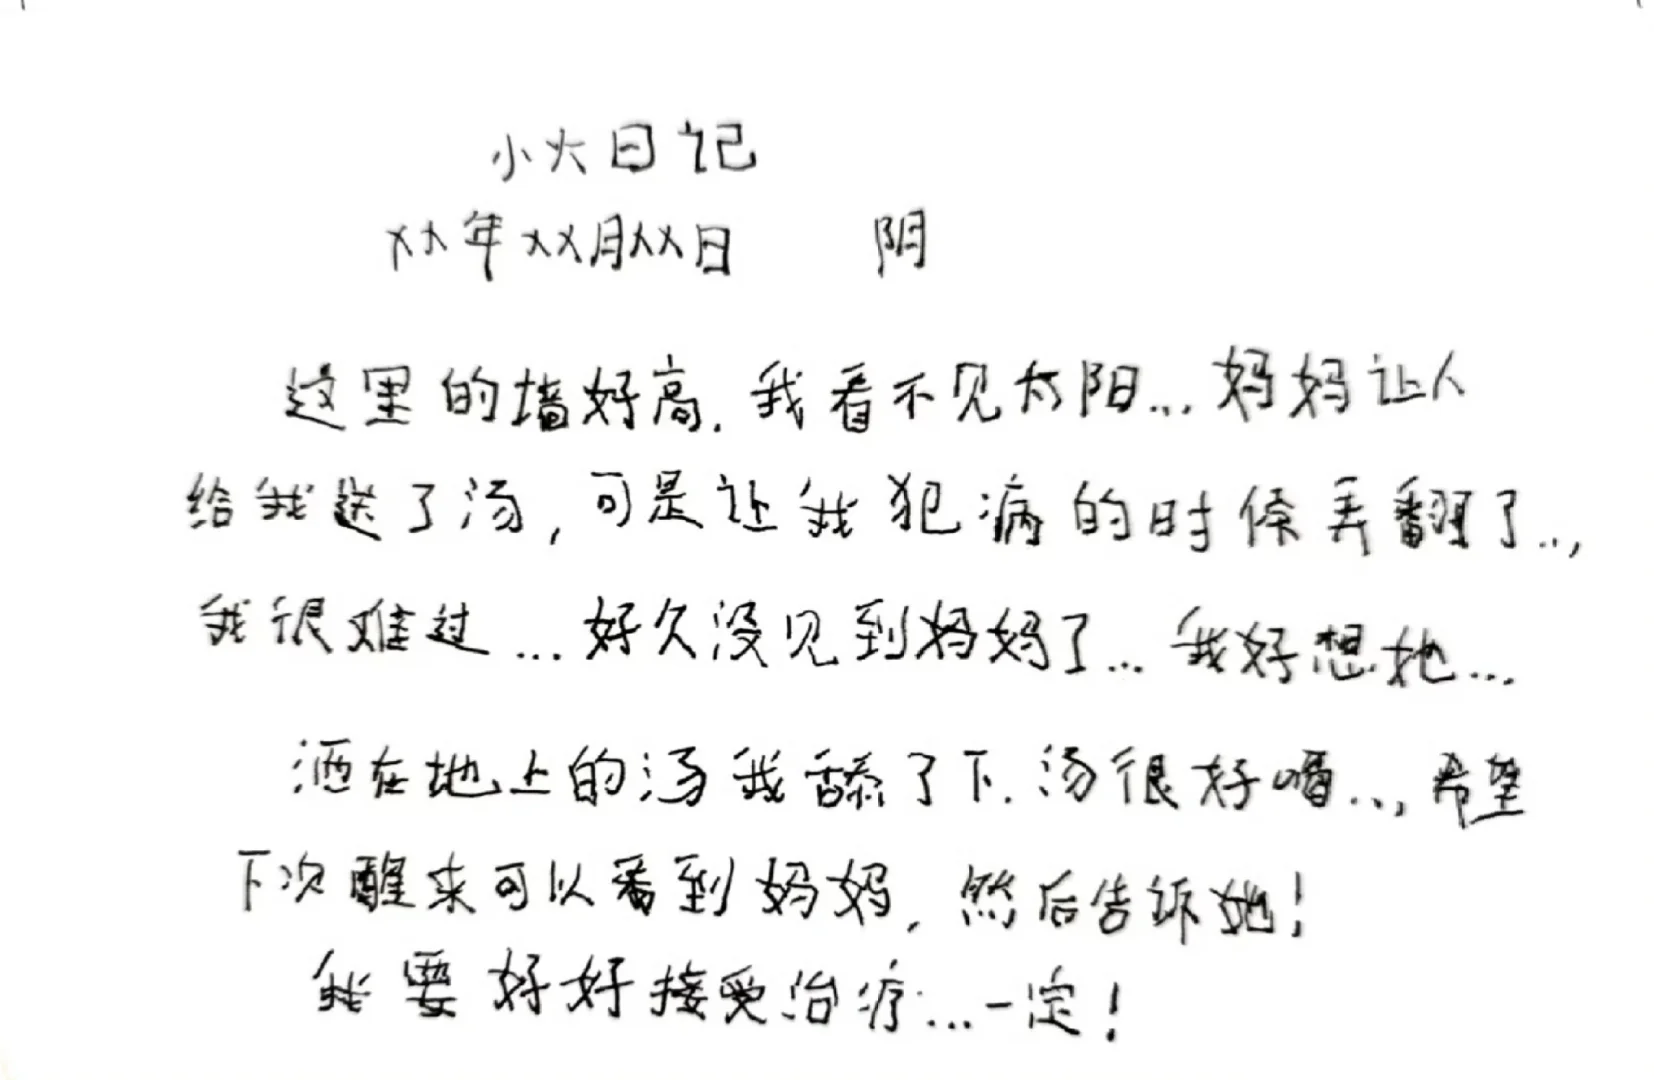 小火日记
xx年xx月xx日 阴
这里的墙好高.我看不见太阳...妈妈让人
给我送了汤,可是让我犯病的时候弄翻了...,
我很难过...好久没见到妈妈了...我好想她...
洒在地上的汤我舔了下.汤很好喝...,希望
下次醒来可以看到妈妈,然后告诉她!
我要好好接受治疗...一定!